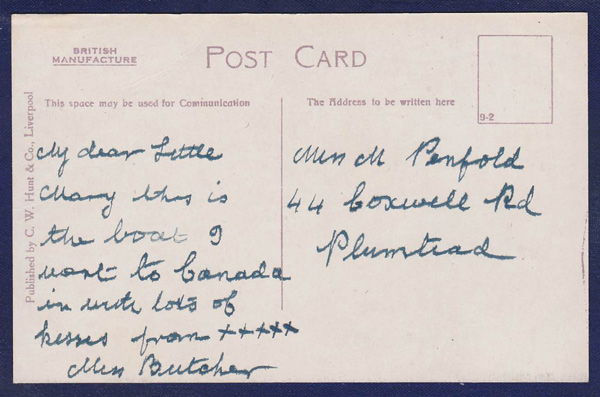 BRITISH
MANUFACTURE
POST CARD
This space may be used for Communication
The Address to be written here
9-2
Published by C. W. Hunt & Co., Liverpool
My dear Little
Mary this is
the boat I
went to Canada
in with lots of
kisses from +++++
Miss Butcher
Miss M Penfold
44 Boxwell Rd
Plumstead